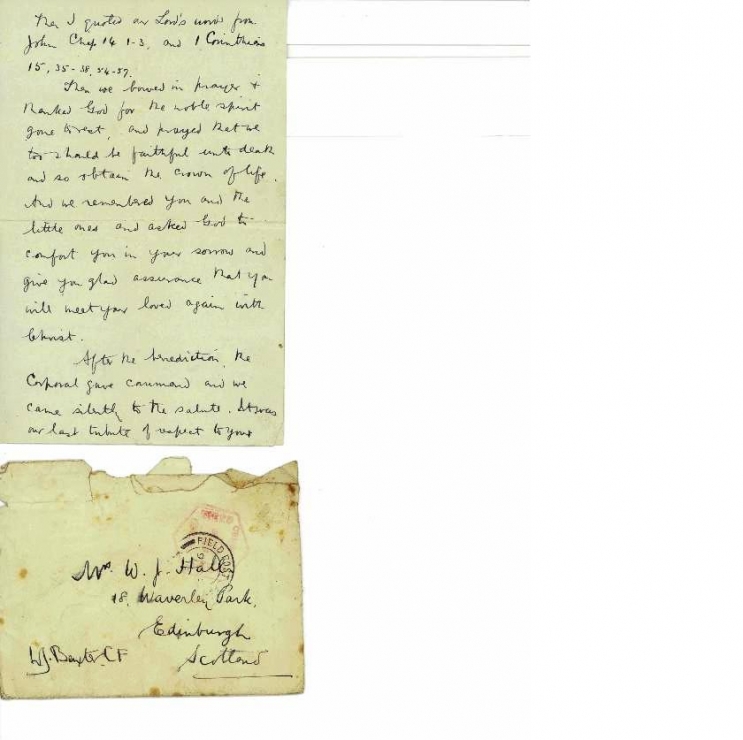 Then I quoted our Lord's words from
John Chap 14 1-3, and 1 Corinthians
15, 35-38, 54-57.
Then we bowed in prayer &
thanked God for the noble spirit
gone to rest, and prayed that we
too should be faithful unto death
and so obtain the crown of life.
And we remembered you and the
little ones and asked God to
comfort you in your sorrow and
give you glad assurance that you
will meet your loved again with
Christ.
After the benediction, the
Corporal gave command and we
came silently to the salute. It was
our last tribute of respect to your
FIELD POST
Mrs W. J. Hall
18, Waverley Park,
Edinburgh
Scotland
W.J. Baxter. CF